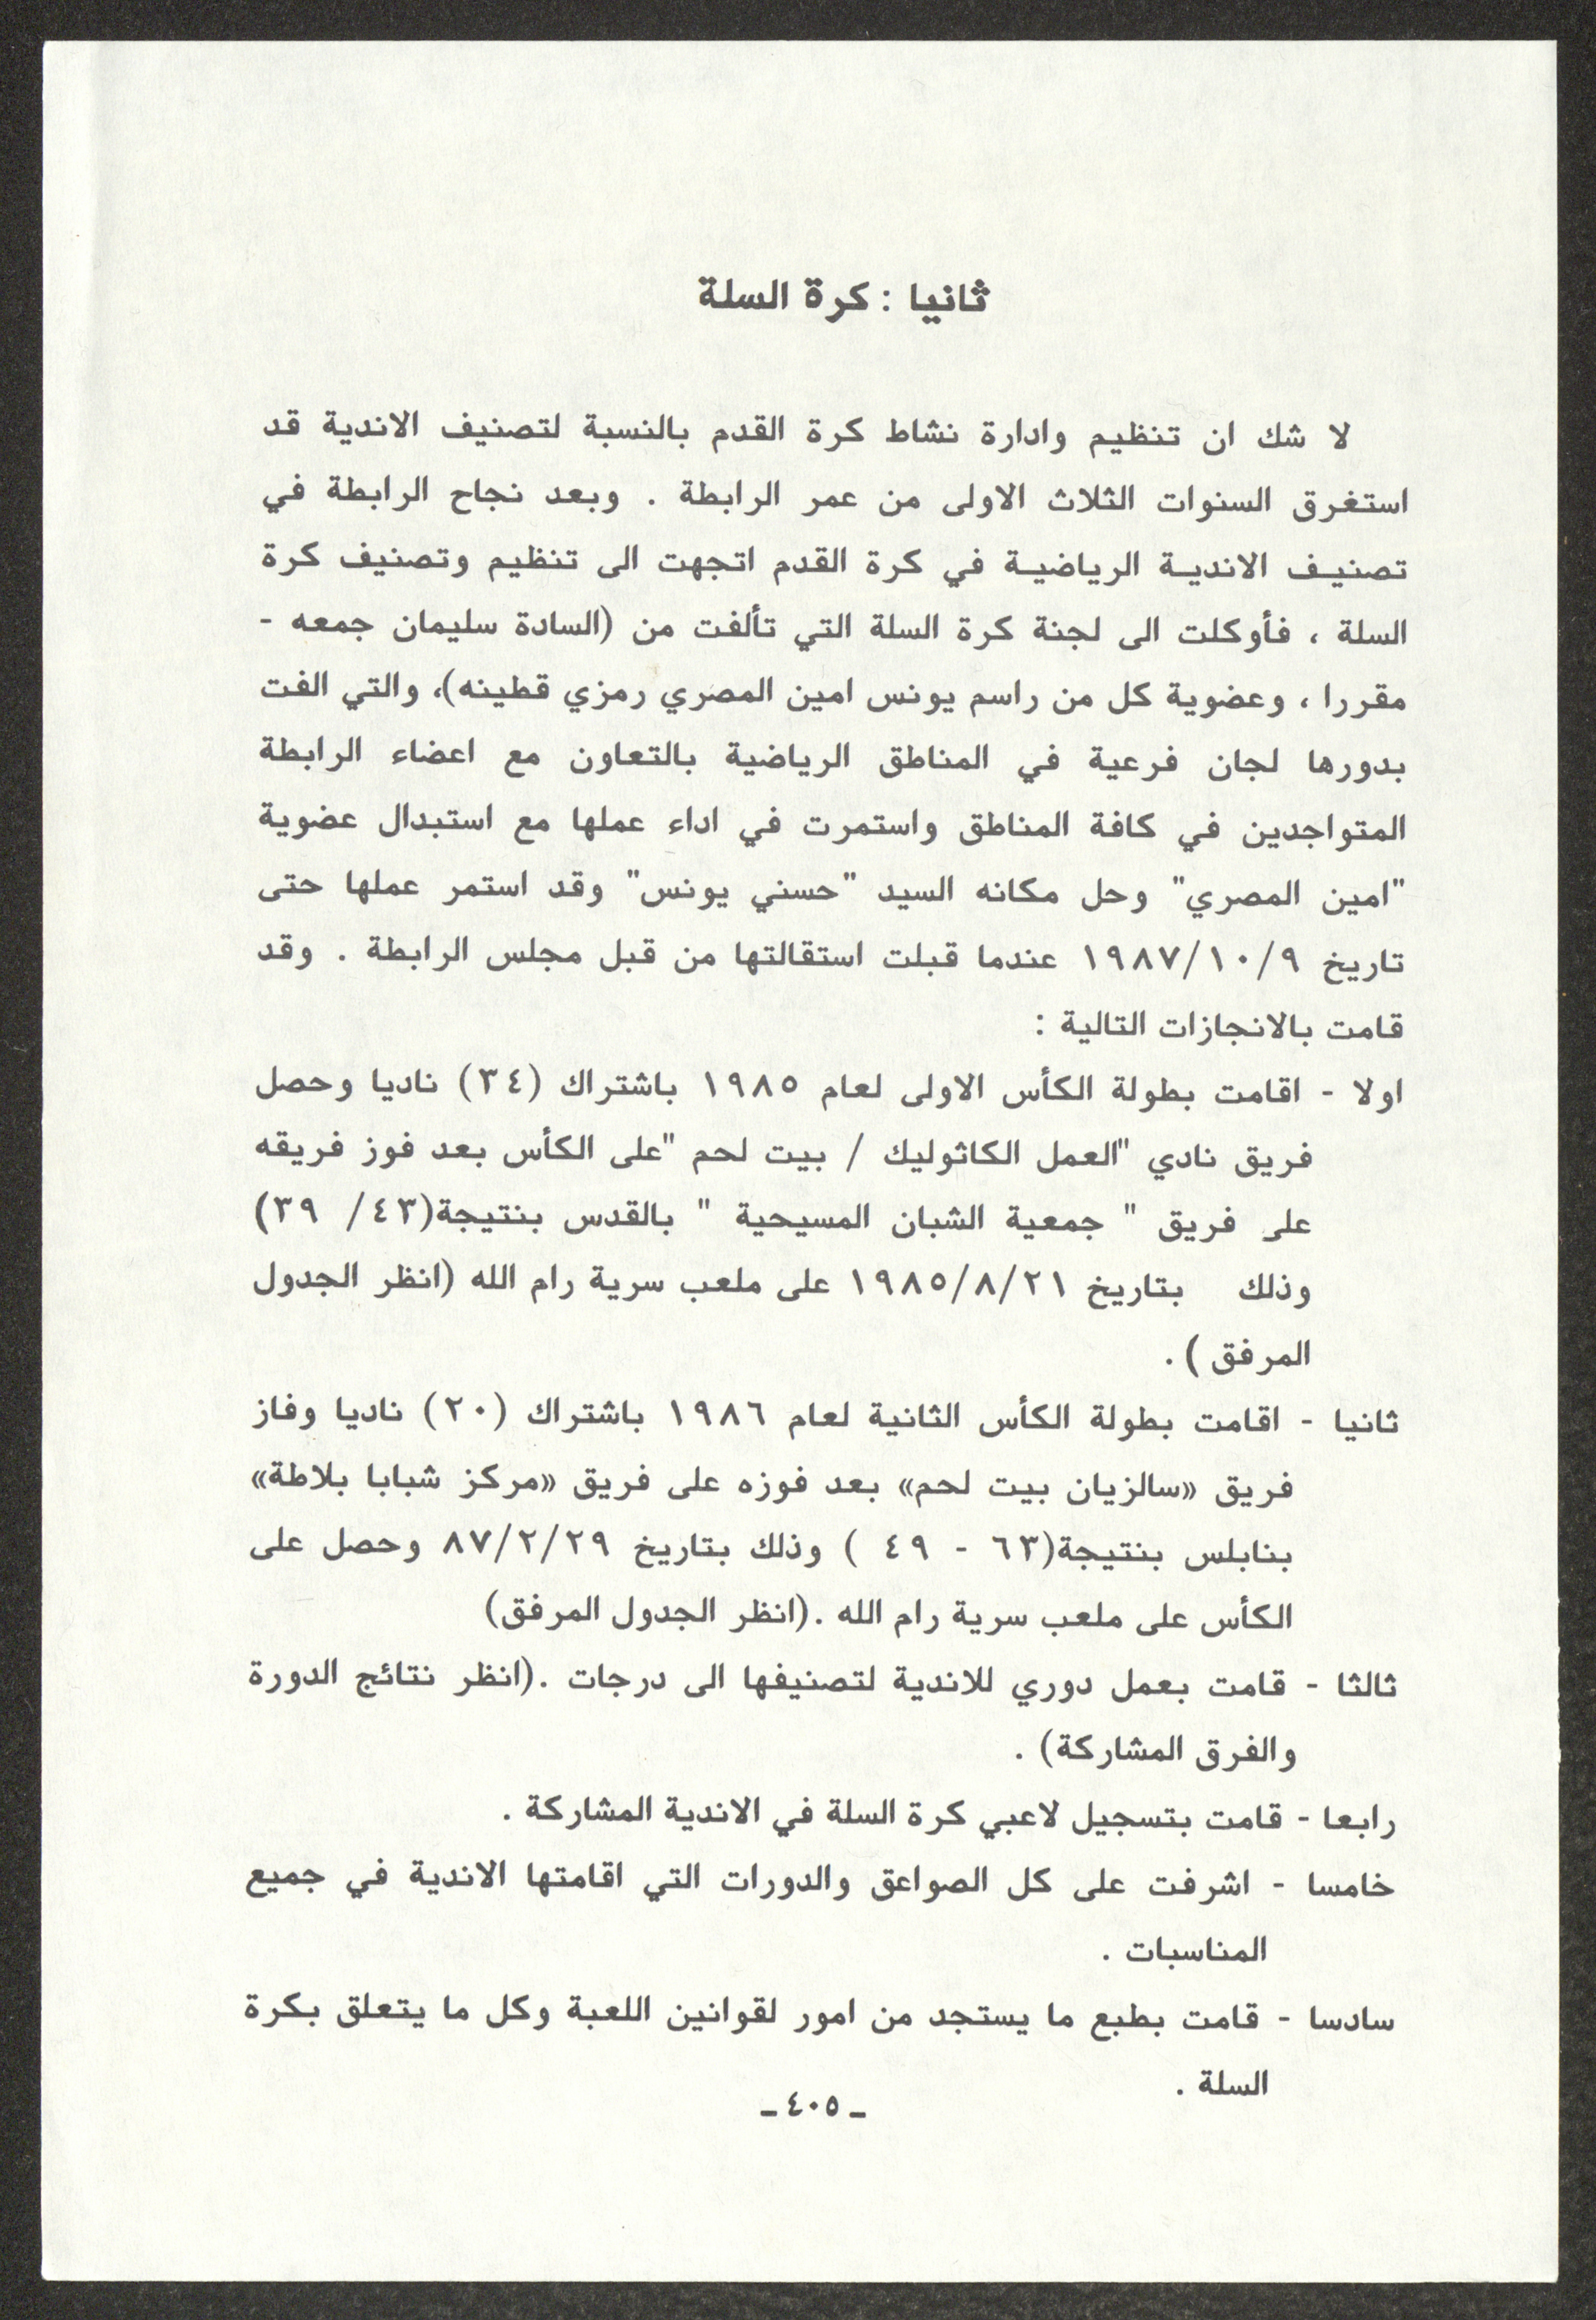 ثانيا : كرة السلة
لا شك ان تنظيم وادارة نشاط كرة القدم بالنسبة لتصنيف الاندية قد
استغرق السنوات الثلاث الاولى من عمر الرابطة . وبعد نجاح الرابطة في
تصنيف الاندية الرياضية في كرة القدم اتجهت الى تنظيم وتصنيف كرة
السلة ، فأوكلت الى لجنة كرة السلة التي تألفت من (السادة سليمان جمعه -
مقررا ، وعضوية كل من راسم يونس امين المصري رمزي قطينه)، والتي الفت
بدورها لجان فرعية في المناطق الرياضية بالتعاون مع اعضاء الرابطة
المتواجدين في كافة المناطق واستمرت في اداء عملها مع استبدال عضوية
"امين المصري" وحل مكانه السيد "حسني يونس" وقد استمر عملها حتى
تاريخ ١٩٨٧/١٠/٩ عندما قبلت استقالتها من قبل مجلس الرابطة . وقد
قامت بالانجازات التالية :
اولا - اقامت بطولة الكأس الاولى لعام ١٩٨٥ باشتراك (٣٤) ناديا وحصل
فريق نادي "العمل الكاثوليك / بيت لحم "على الكأس بعد فوز فريقه
على فريق " جمعية الشبان المسيحية " بالقدس بنتيجة(٤٣/ ٣٩)
وذلك بتاريخ ١٩٨٥/٨/٢١ على ملعب سرية رام الله (انظر الجدول
المرفق ) .
ثانيا - اقامت بطولة الكأس الثانية لعام ١٩٨٦ باشتراك (٢٠) ناديا وفاز
فريق «سالزيان بيت لحم» بعد فوزه على فريق «مركز شبابا بلاطة»
بنابلس بنتيجة(٦٣ - ٤٩ ) وذلك بتاريخ ٨٧/٢/٢٩ وحصل على
الكأس على ملعب سرية رام الله .(انظر الجدول المرفق)
ثالثا - قامت بعمل دوري للاندية لتصنيفها الى درجات .(انظر نتائج الدورة
والفرق المشاركة) .
رابعا - قامت بتسجيل لاعبي كرة السلة في الاندية المشاركة .
خامسا - اشرفت على كل الصواعق والدورات التي اقامتها الاندية في جميع
المناسبات .
سادسا - قامت بطبع ما يستجد من امور لقوانين اللعبة وكل ما يتعلق بكرة
السلة .
ـ ٤٠٥ ـ